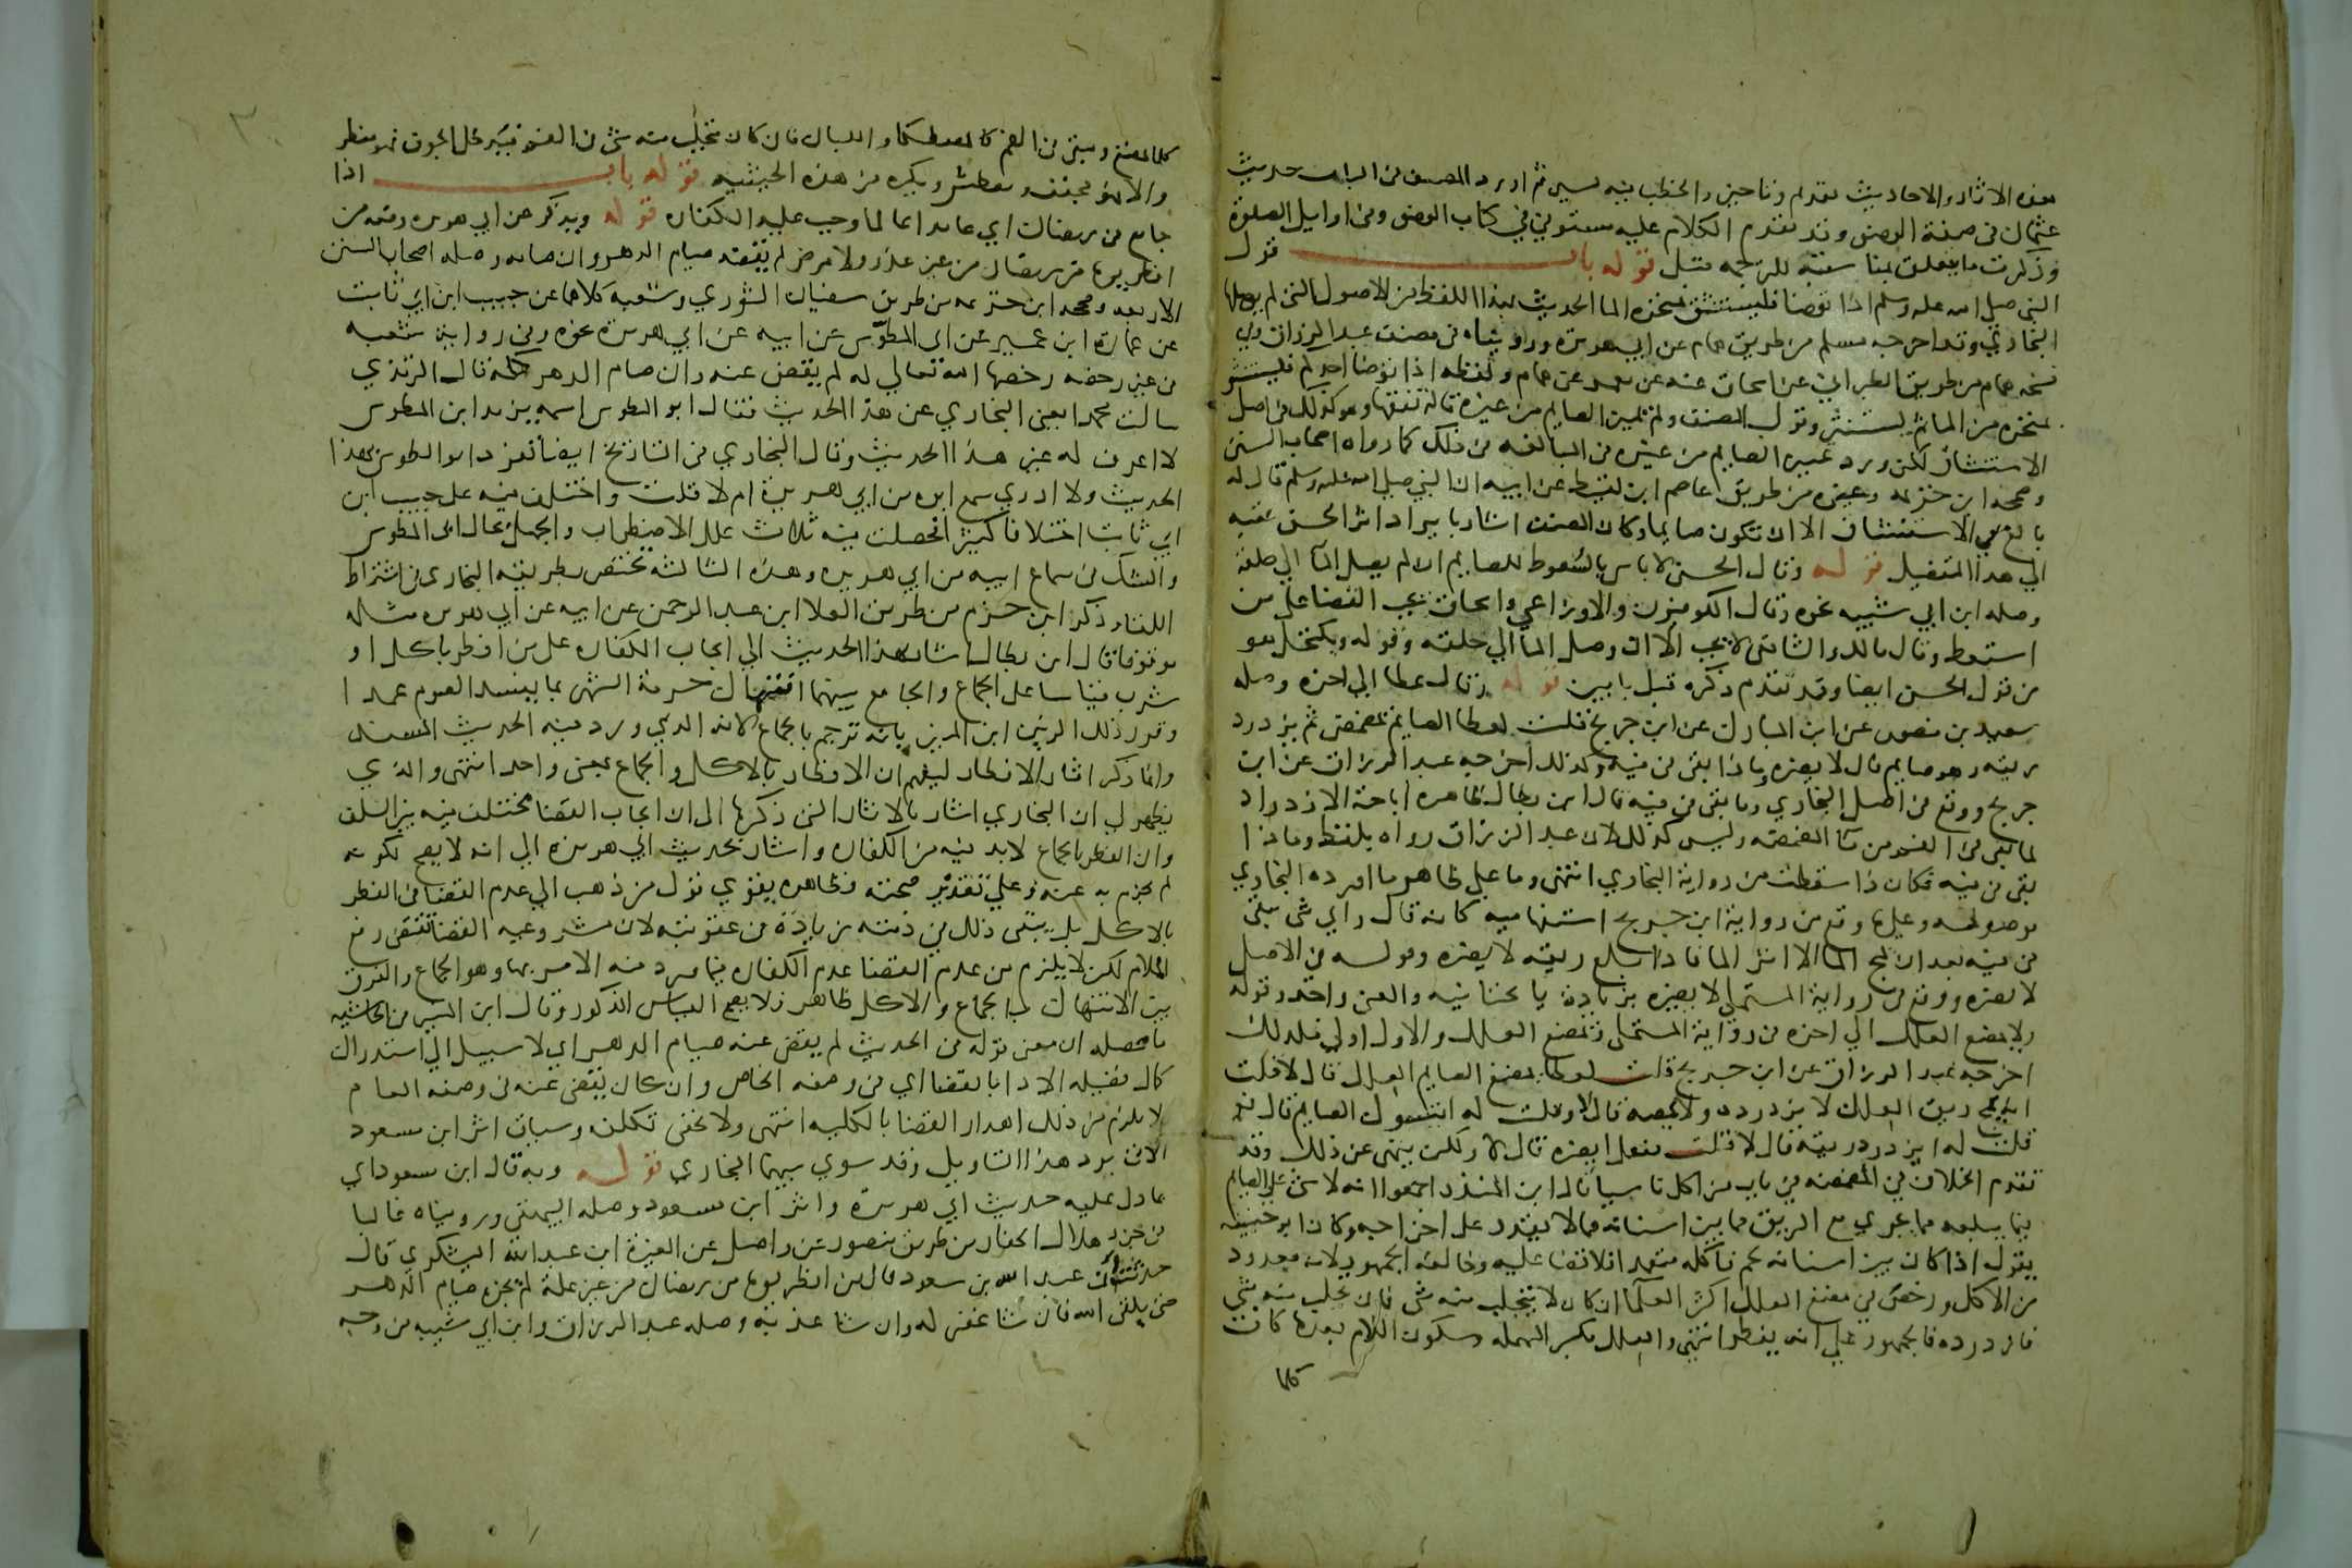 بهذه الاثار والاحاديث تقدم وناحين والخطب فيه يسير ثم اورد المصنف في الباب حديث
عثمان في صفة الوضوء وقد تقدم الكلام عليه مستوفي في كتاب الوضوء وفي اوايل الصلوة
وذكرت ما يتعلق بمناسبته للترجمه قبل قوله باب قول
النبي صلي الله عليه وسلم اذا توضا فليستنشق بمنخره الما الحديث بهذا اللفظ من الاصول التي لم يوصلها
البخاري وقد اخرجه مسلم من طريق همام عن ابي هريرة ورويناه في مصنف عبد الرزاق وفي
نسخه همام من طريق الطبراني عن اسحاق عنه عن معمر عن همام ولفظه اذا توضا احدكم فليستنشق
بمنخره من الما ثم ليستنثر وقول المصنف ولم يميز الصايم من غيره قاله تفقها وهو كذلك في اصل
الاستنشاق لكن ورد تمييز الصايم من غيره في المبالغه في ذلك كما رواه اصحاب السنن
وصححه ابن خزيمه وغيره من طريق عاصم ابن لقيط عن ابيه ان النبي صلي الله عليه وسلم قال له
بالغ في الاستنشاق الا ان تكون صايما وكان المصنف اشار بايراد اثر الحسن عقبه
الي هذا التفصيل قوله وقال الحسن لا باس بالسعوط للصايم ان لم يصل الما الي حلقه
وصله ابن ابي شيبه نحوه وقال الكوفيون والاوزاعي واسحاق يجب القضا علي من
استعط وقال مالك والشافعي لا يجب الا ان وصل الما الي حلقه وقوله ويكتحل هو
من قول الحسن ايضا وقد تقدم ذكره قبل بابين قوله وقال عطا الي اخره وصله
سعيد بن منصور عن ابن المبارك عن ابن جريج قلت لعطا الصايم يتمضمض ثم يزدرد
ريقه وهو صايم قال لا يضره وماذا بقي في فيه وكذلك اخرجه عبد الرزاق عن ابن
جريج ووقع في اصل البخاري وما بقي في فيه قال ابن بطال ظاهره اباحة الازدراد
لما بقي في الفم من ما المضمضه وليس كذلك لان عبد الرزاق رواه بلفظ وماذا
بقي في فيه فكان ذا سقطت من رواية البخاري انتهي وما علي ظاهر ما اورده البخاري
موصوله وعليها وقع من رواية ابن جريج استفهاميه كانه قال واي شي يبقي
في فيه بعد ان يمج الما الا اثر الما فاذا بلع ريقه لا يضره وقوله في الاصل
لا يضره ووقع في رواية المستملي لا يضيره بزيادة يا تحتانيه والمعني واحد وقوله
ولا يمضغ العلك الي اخره في رواية المستملي ويمضغ العلك والاول اولي فلذلك
اخرجه عبد الرزاق عن ابن جريج قلت لعطا يمضغ الصايم العلك قال لا قلت
انه يمج ريق العلك لا يزدرده ولا يمصه قال لا وقلت له ايتسوك الصايم قال نعم
قلت له ايزدرد ريقه قال لا قلت ففعل ايضره قال لا ولكن ينهي عن ذلك وقد
تقدم الخلاف في المضمضه في باب من اكل ناسيا قال ابن المنذر اجمعوا انه لا شي علي الصايم
فيما يبلعه مما يجري مع الريق مما بين اسنانه مما لا يقدر علي اخراجه وكان ابو حنيفه
يقول اذا كان بين اسنانه لحم فاكله متعمدا فلا قضا عليه وخالفه الجمهور لانه معدود
من الاكل ورخص في مضغ العلك اكثر العلما ان كان لا يتحلب منه شي فان تحلب منه شي
فازدرده فالجمهور علي انه يفطر انتهي والعلك بكسر المهمله وسكون اللام بعدها كاف
كلما
كلما يمضغ ويبقي في الفم كالمصطكا واللبان فان كان يتحلب منه شي في الفم فيدخل الجوف فهو مفطر
والا فهو مجفف ومعطش ويكره من هذه الحيثيه قوله باب اذا
جامع في رمضان اي عامدا عالما وجب عليه الكفاره قوله ويذكر عن ابي هريره رفعه من
افطر يوما من رمضان من غير عذر ولا مرض لم يقضه صيام الدهر وان صامه وصله اصحاب السنن
الاربعه وصححه ابن خزيمه من طريق سفيان الثوري وشعبه كلاهما عن حبيب ابن ابي ثابت
عن عمارة ابن عمير عن ابي المطوس عن ابيه عن ابي هريرة نحوه وفي رواية شعبه
في غير رخصه رخصها الله تعالي له لم يقض عنه وان صام الدهر كله قال الترمذي
سالت محمدا يعني البخاري عن هذا الحديث فقال ابو المطوس اسمه يزيد ابن المطوس
لا اعرف له غير هذا الحديث وقال البخاري في التاريخ ايضا تفرد ابو المطوس بهذا
الحديث ولا ادري سمع ابوه من ابي هريرة ام لا قلت واختلف فيه علي حبيب ابن
ابي ثابت اختلافا كثيرا فحصلت فيه ثلاث علل الاضطراب والجهل بحال ابي المطوس
والشك في سماع ابيه من ابي هريره وهذه الثالثه تختص بطريقة البخاري في اشتراط
اللقاء وذكر ابن حزم من طريق العلا ابن عبد الرحمن عن ابيه عن ابي هريره مثله
موقوفا قال ابن بطال اشار بهذا الحديث الي ايجاب الكفاره علي من افطر باكل او
شرب قياسا علي الجماع والجامع بينهما انتهاك حرمة الشهر بما يفسد الصوم عمدا
وقرر ذلك الزين ابن المنير بانه ترجم بالجماع لانه الذي ورد فيه الحديث المسند
وانما ذكر اثار الافطار ليفهم ان الافطار بالاكل والجماع بمعني واحد انتهي والذي
يظهر لي ان البخاري اشار بالاثار التي ذكرها الي ان ايجاب القضا مختلف فيه بين السلف
وان الفطر بالجماع لابد فيه من الكفاره واشار بحديث ابي هريره الي انه لا يصح لكونه
لم يجزم به عنه وعلي تقدير صحته فظاهره يقوي قول من ذهب الي عدم القضا في الفطر
بالاكل بل يبقي ذلك في ذمته زيادة في عقوبته لان مشروعيه القضا تقتضي رفع
الملام لكن لا يلزم من عدم القضا عدم الكفاره فيما ورد فيه الامر بها وهو الجماع والفرق
بين الانتهاك بالجماع والاكل ظاهر فلا يصح القياس المذكور وقال ابن المنير في الحاشيه
ما محصله ان معني قوله في الحديث لم يقض عنه صيام الدهر اي لا سبيل الي استدراك
كمال فضيله الادا بالقضا اي في وصفه الخاص وان كان يقضي عنه في وصفه العام
لا يلزم من ذلك اهدار القضا بالكليه انتهي ولا يخفي تكلفه وسياق اثر ابن مسعود
الاتي يرد هذا التاويل وقد سوي بينهما البخاري قوله وبه قال ابن مسعود اي
بما دل عليه حديث ابي هريرة واثر ابن مسعود وصله البيهقي ورويناه عاليا
في جزء هلال الحفار من طريق منصور عن واصل عن المغيرة ابن عبد الله اليشكري قال
حدثت ان عبد الله بن مسعود قال من افطر يوما من رمضان من غير علة لم يجزه صيام الدهر
حتي يلقي الله فان شا غفر له وان شا عذبه وصله عبد الرزاق وابن ابي شيبه من وجه